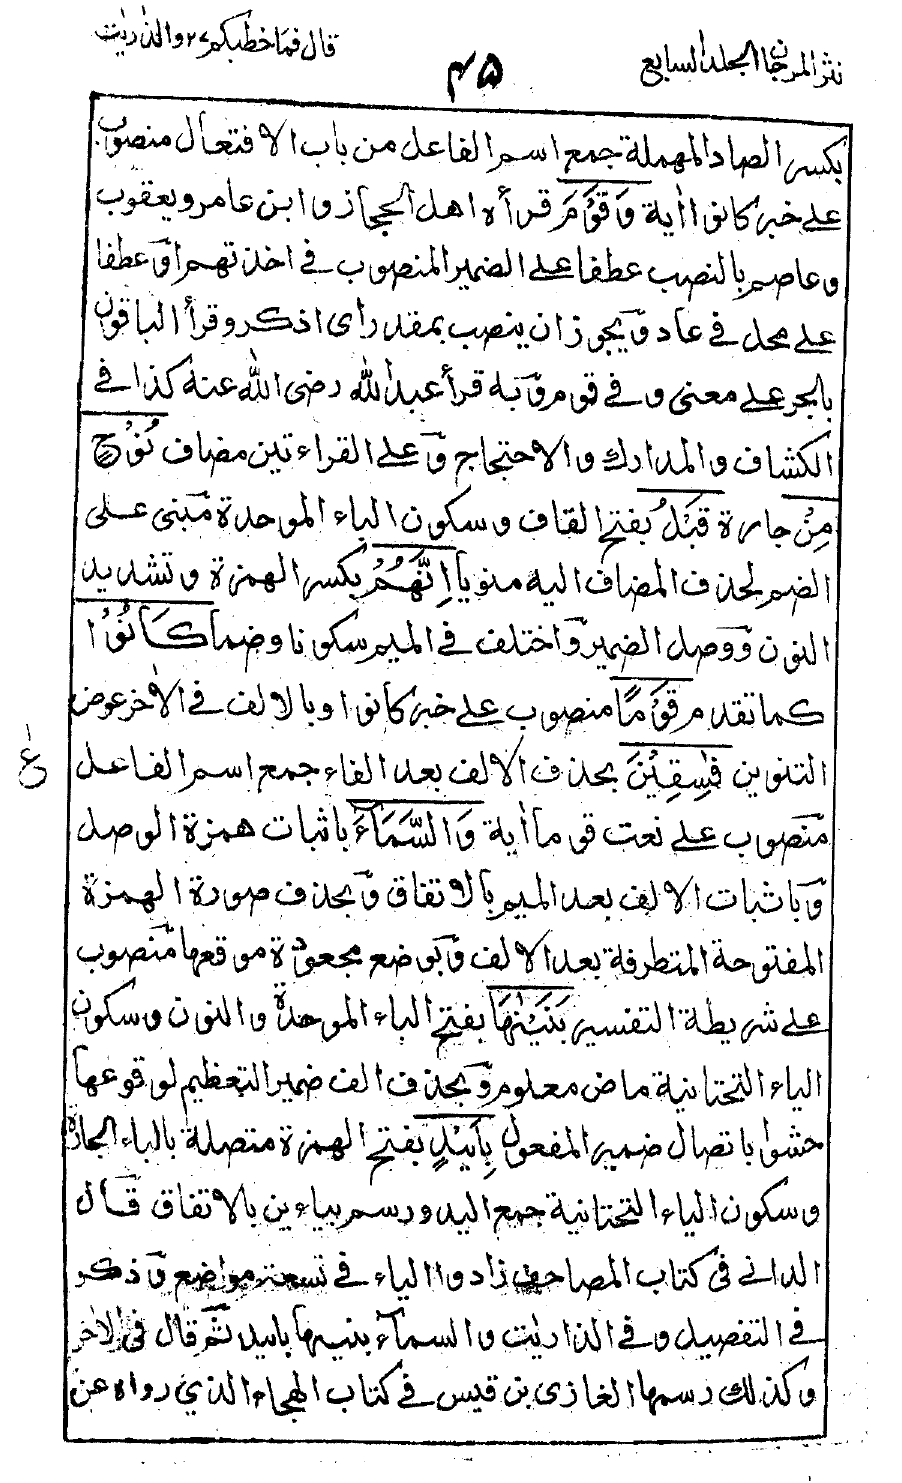 نثر المرجان المجلد السابع
۴۵
قال فما خطبكم ٢٧ والذٰريٰت
بكسر الصاد المهملة جمع اسم الفاعل من باب الافتعال منصوب
على خبر كانوا اٰية وَقَوْمَ قرأه اهل الحجاز وابن عامر ويعقوب
وعاصم بالنصب عطفا على الضمير المنصوب في اخذتهم او عطفا
على محل في عاد ويجوز ان ينصب بمقدر اى اذكر وقرأ الباقون
بالجر على معنى وفي قوم وبه قرأ عبد الله رضى الله عنه كذا في
الكشاف والمدارك والاحتجاج وعلى القراءتين مضاف نُوْحٍ
مِنْ جارة قَبْلُ بفتح القاف وسكون الباء الموحدة مبنى على
الضم لحذف المضاف اليه منويا اِنَّهُمْ بكسر الهمزة وتشديد
النون ووصل الضمير واختلف في الميم سكونا وضما كَانُوْا
كما تقدم قَوْمًا منصوب على خبر كانوا وبالالف في الاٰخر عوض
التنوين فٰسِقِيْنَ بحذف الالف بعد الفاء جمع اسم الفاعل
ع
منصوب على نعت قوما اٰية وَالسَّمَآءَ باثبات همزة الوصل
وباثبات الالف بعد الميم بالاتفاق وبحذف صورة الهمزة
المفتوحة المتطرفة بعد الالف وبوضع مجعودة موقعها منصوب
على شريطة التفسير بَنَيْنٰهَا بفتح الباء الموحدة والنون وسكون
الياء التحتانية ماض معلوم وبحذف الف ضمير التعظيم لوقوعها
حشوا باتصال ضمير المفعول بِاَيْىدٍ بفتح الهمزة متصلة بالباء الجارة
وسكون الياء التحتانية جمع اليد ورسم بياءين بالاتفاق قال
الدانى في كتاب المصاحف زادوا الياء في تسعة مواضع وذكر
في التفصيل وفي الذاريٰت والسمآء بنينٰها باييد ثم قال في الاٰخر
وكذلك رسمها الغازى بن قيس في كتاب الهجاء الذي رواه عن